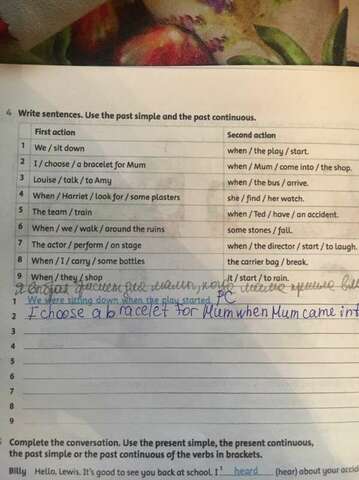 4 Write sentences. Use the past simple and the past continuous.
First action Second action
1 We / sit down when / the play / start.
2 I / choose / a bracelet for Mum when / Mum / come into / the shop.
3 Louise / talk / to Amy when / the bus / arrive.
4 When / Harriet / look for / some plasters she / find / her watch.
5 The team / train when / Ted / have / an accident.
6 When / we / walk / around the ruins some stones / fall.
7 The actor / perform / on stage when / the director / start / to laugh.
8 When / I / carry / some bottles the carrier bag / break.
9 When / they / shop it / start / to rain.
я для мамы, когда мама
1 We were sitting down when the play started. PC
2 I choose a bracelet for Mum when Mum came int
3
4
5
6
7
8
9
Complete the conversation. Use the present simple, the present continuous,
the past simple or the past continuous of the verbs in brackets.
Billy Hello, Lewis. It's good to see you back at school. I 1 heard (hear) about your accid